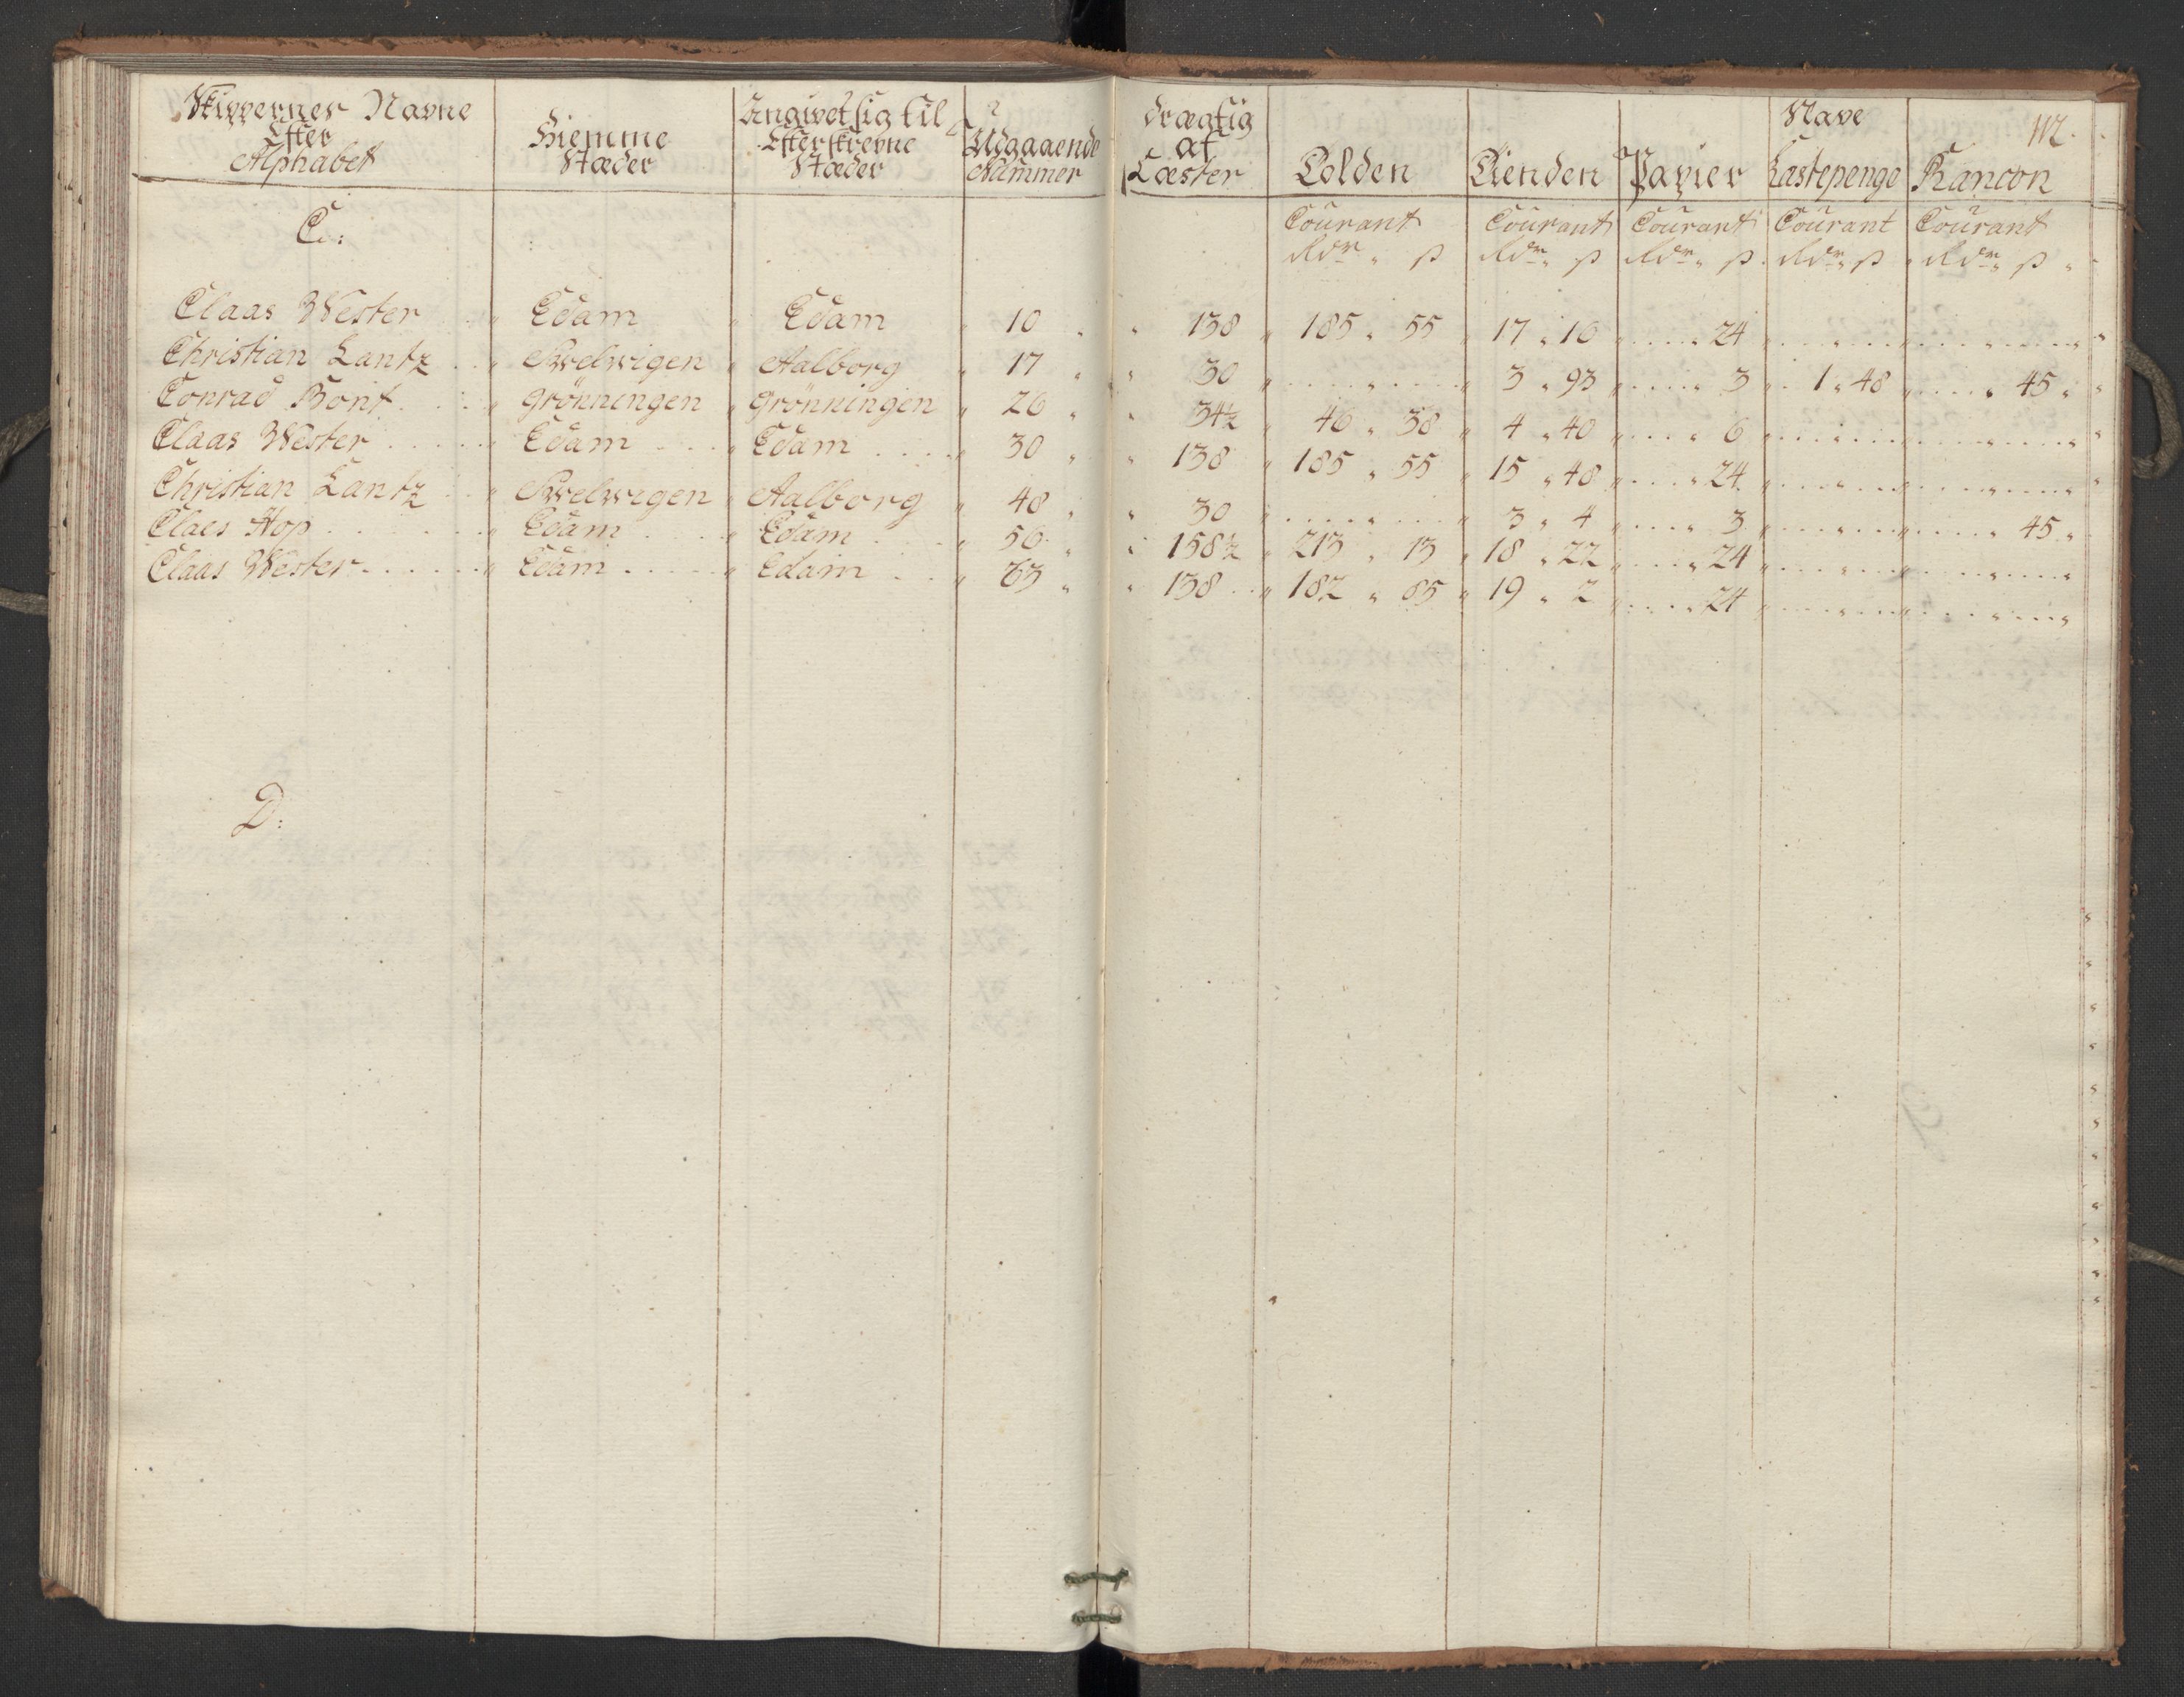 112.
Skippernes Navne Efter Alphabet | Hiemme Stæder | Angivet sig til Efterskrevne Stæder | Udgaaende Nummer | drægtig af Læster | Tolden | Tienden | Papier | Nave Lastepenge | Rancon
C: | Courant Rdr ß | Courant Rdr ß | Courant Rdr ß | Courant Rdr ß | Courant Rdr ß
Claas Wester | Edam | Edam | 10 | 138 | 185 " 55 | 17 " 16 | 24
Christian Lantz | Svelvigen | Aalborg | 17 | 30 | | 3 " 93 | 3 | 1 " 48 | 45
Conrad Bont | Grönningen | Grönningen | 26 | 34½ | 46 " 38 | 4 " 40 | 6
Claas Wester | Edam | Edam | 30 | 138 | 185 " 55 | 15 " 48 | 24
Christian Lantz | Svelvigen | Aalborg | 48 | 30 | | 3 " 4 | 3 | | 45
Claes Hop | Edam | Edam | 56 | 158½ | 213 " 13 | 18 " 22 | 24
Claas Wester | Edam | Edam | 63 | 138 | 182 " 85 | 19 " 2 | 24
D: